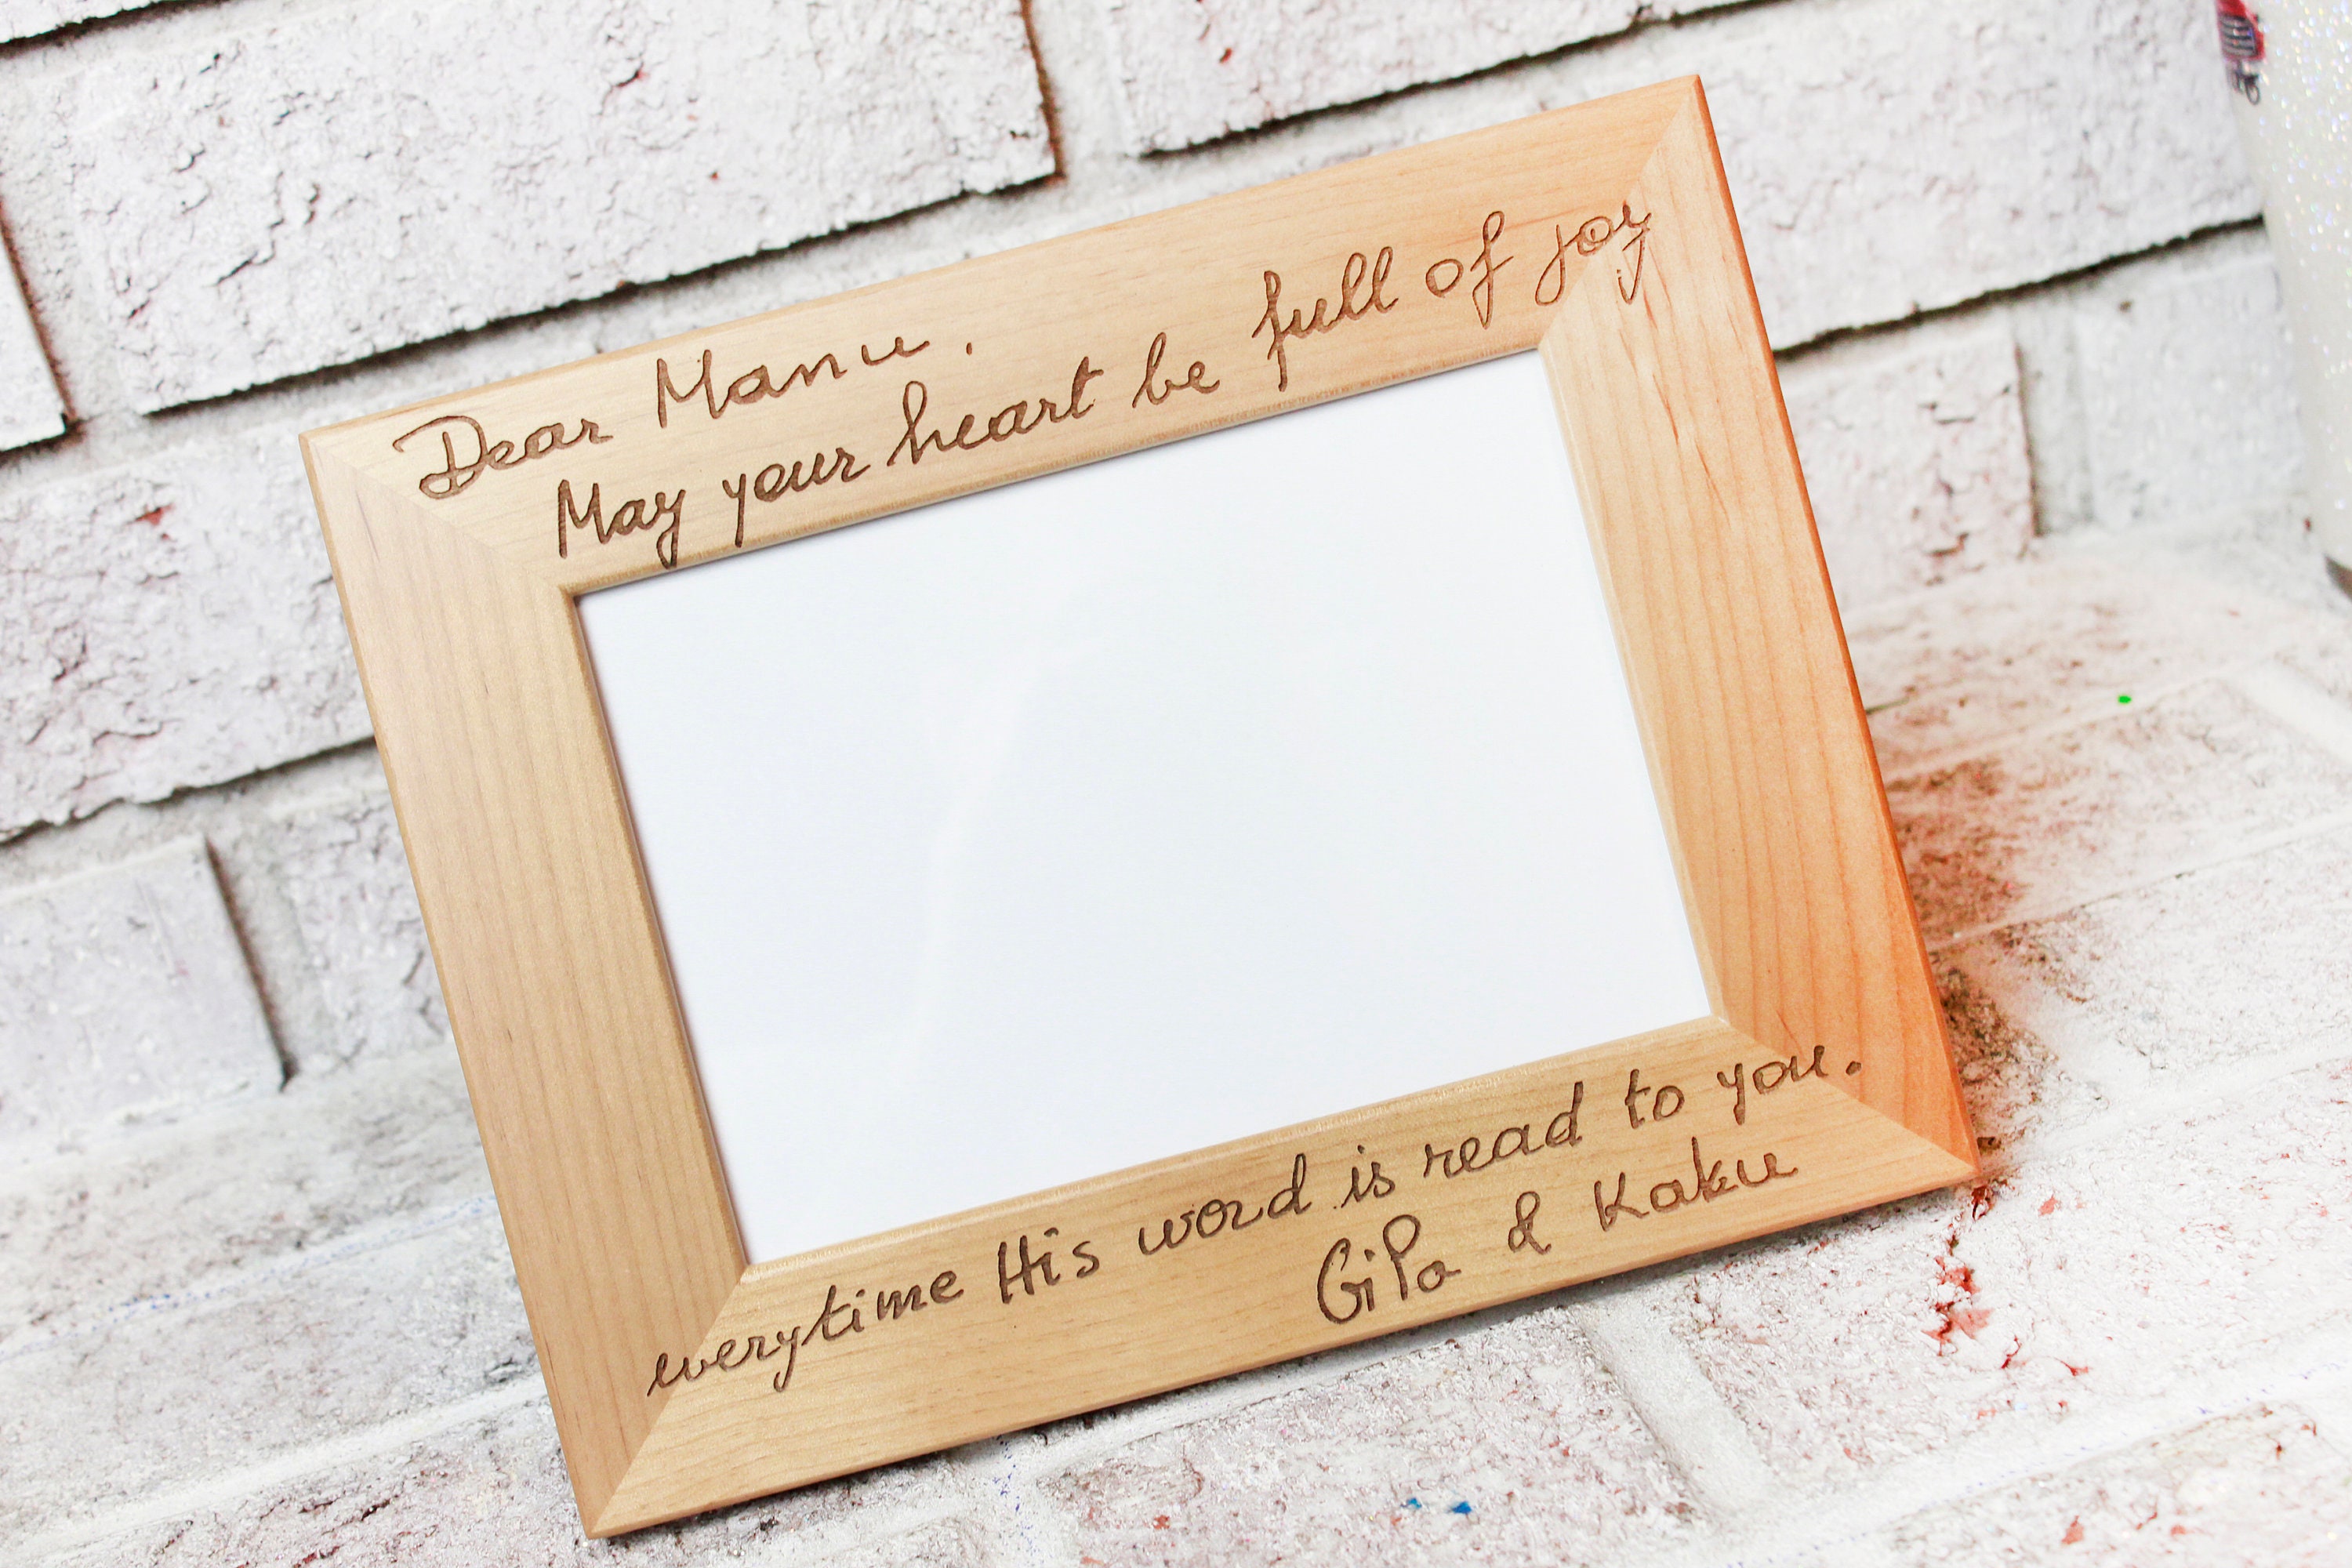 Dear Manu,
May your heart be full of joy
everytime His word is read to you.
GiPa & Kaku